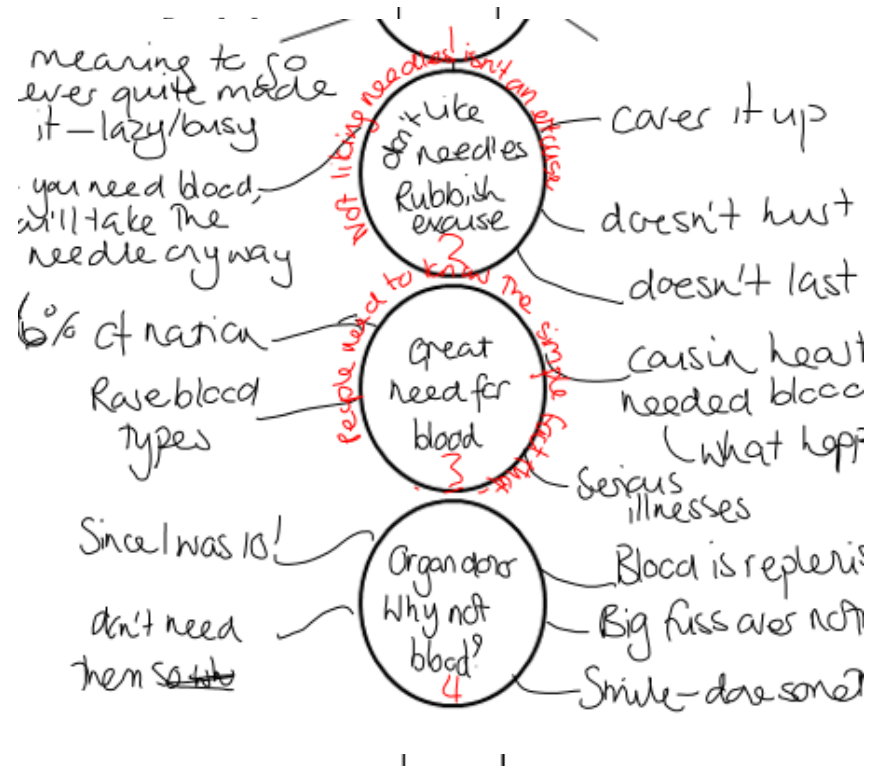 meaning to go
ever quite made
it – lazy/busy
you need blood,
will take the
needle anyway
Not liking needles isn't an excuse
don't like
needies
Rubbish
excuse
2
cover it up
doesn't hurt
doesn't last
People need to know the simple fact that
6% of nation
Rare blood
types
Great
need for
blood
3
cousin heart
needed blood
what happ
serious
illnesses
Since I was 10!
don't need
them
Organ donor
Why not
blood?
4
Blood is replenis
Big fuss over noth
Smile – done someth